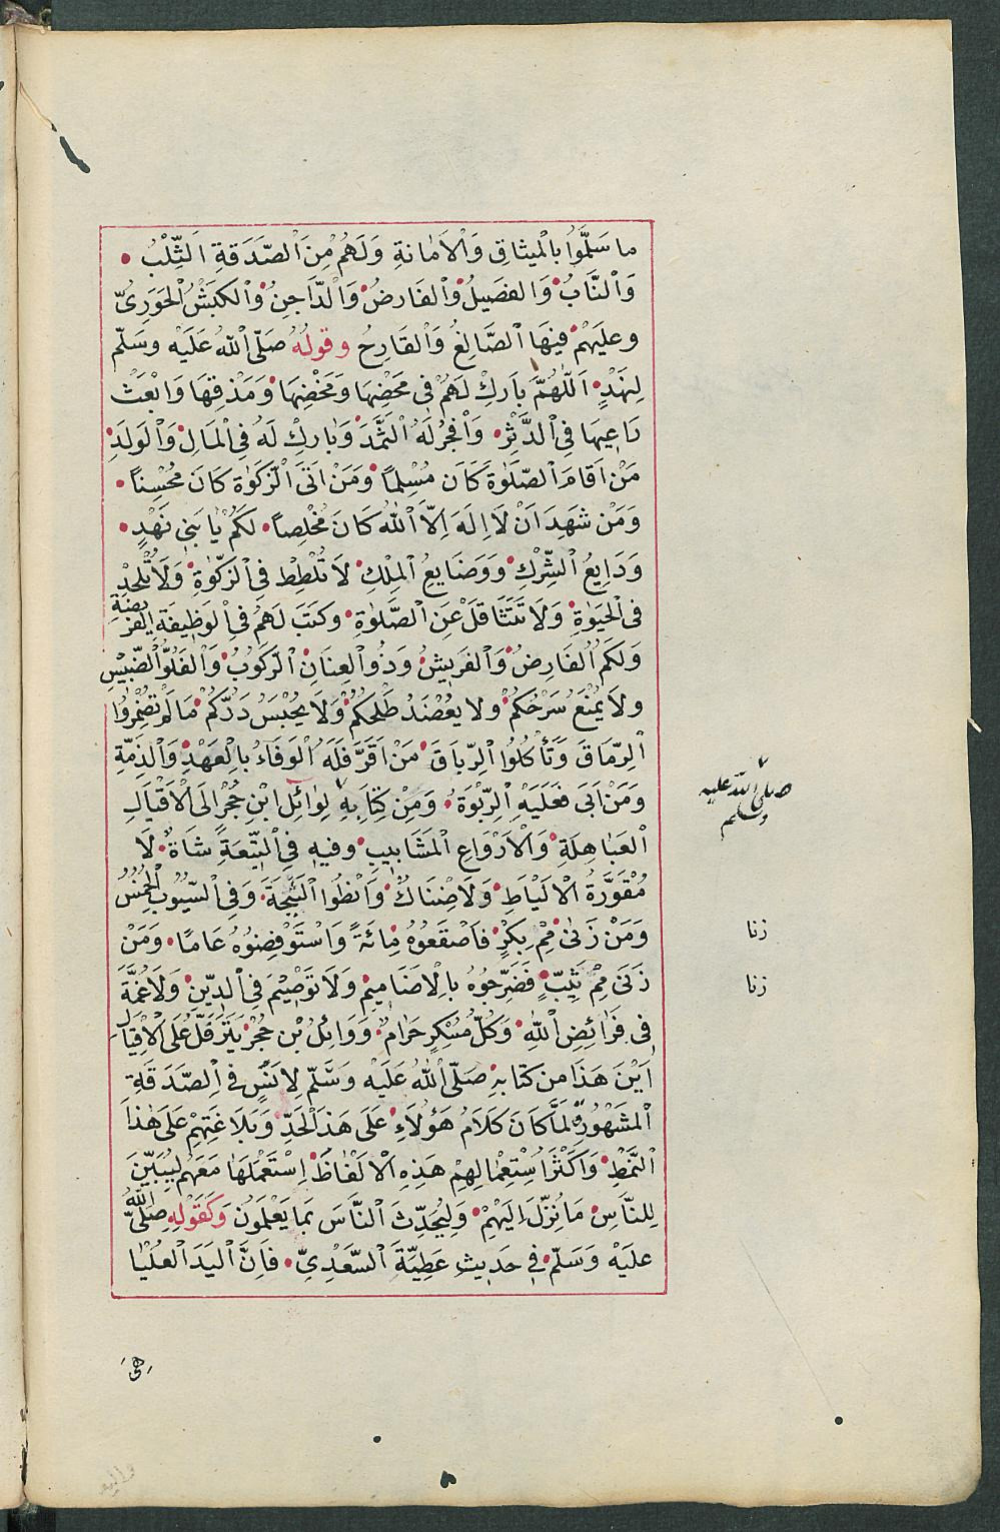 ما سَلَّمُوا بِالْمِيثَاقِ وَالْاَمَانَةِ وَلَهُمْ مِنَ الصَّدَقَةِ الثِّلْبُ •
وَالنَّابُ • وَالفَصِيلُ • وَالفَارِضُ • وَالدَّاجِنُ • وَالْكَبْشُ الْحَوَرِىُّ
وعَلَيْهِمْ فِيهَا الصَّالِغُ وَالْقَارِحُ وقولُهُ صَلَّى اللهُ عَلَيْه وسَلَّم
لِنَهْدٍ • اَللّٰهُمَّ بَارِكْ لَهُمْ فى مَحْضِهَا وَمَخْضِهَا • وَمَذْقِهَا وَابْعَثْ
رَاعِيهَا فِى الدَّثْرِ • وَافْجُرْ لَهُ الثَّمَدَ • وَبَارِكْ لَهُ فِى الْمَالِ • وَالْوَلَدِ •
مَنْ اَقَامَ الصَّلٰوةَ كَانَ مُسْلِمًا • وَمَنْ اٰتَى الزَّكَوٰةَ كَانَ مُحْسِنًا •
وَمَنْ شَهِدَ اَنْ لَا اِلَهَ اِلَّا اللهُ كَانَ مُخْلِصًا • لَكُمْ يَا بَنِى نَهْدٍ •
وَدَايِعُ الشِّرْكِ • وَوَضَايِعُ الْمِلْكِ • لَا تُلْطِطْ فِى الزَّكٰوةِ • وَلَا تُلْحِدْ
فى الْحَيَوٰةِ • وَلَا تَتَثَاقَلْ عَنِ الصَّلٰوةِ • وكَتَبَ لَهُمْ فى الْوَظِيفَةِ الفَرِيضَةِ
وَلَكُمُ الفَارِضُ • وَالْفَرِيشُ • وَذُو الْعِنَانِ الرَّكُوبُ • وَالْفَلُوُّ الضَّبِيسُ
ولَا يُمْنَعُ سَرْحُكُمْ • ولَا يُعْضَدُ طَلْحُكُمْ • وَلَا يُحْبَسُ دَرُّكُمْ • مَا لَمْ تُضْمِرُوا
الرِّمَاقَ وَتَأْكُلُوا الرِّبَاقَ • مَنْ اَقَرَّ فَلَهُ الْوَفَاءُ بِالْعَهْدِ • وَالذِّمَّةِ
وَمَنْ اَبَى فَعَلَيْهِ الرِّبْوَةُ • وَمِنْ كِتَابِهِ لِوَائِلِ ابْنِ حُجْرٍ اِلَى الْاَقْيَالِ
الْعَبَاهِلَةِ • وَالْاَرْوَاعِ الْمَشَابِيبِ • وفيهِ فِى التِّيعَةِ شَاةٌ • لَا
مُقْوَرَّةُ الْاَلْيَاطِ • وَلَا ضِنَاكٌ • وَانْطُوا الثَّبَجَةَ • وَفِى السُّيُوبِ الْخُمُسُ
وَمَنْ زَنٰى مِمْ بِكْرٍ • فَاصْقَعُوهُ مِائَةً وَاسْتَوْفِضُوهُ عَامًا • وَمَنْ
زَنَى مِمْ ثَيِّبٍ • فَضَرِّجُوهُ بِالْاَضَامِيمِ • وَلَا تَوْصِيْمَ فِى الدِّينِ • وَلَا غُمَّةَ
فِى فَرَائِضِ اللهِ • وَكُلُّ مُسْكِرٍ حَرَامٌ • وَوَائِلُ بْنُ حُجْرٍ يَتَرَفَّلُ عَلَى الْاَقْيَالِ
اَيْنَ هَذَا مِن كِتَابِهِ صَلَّى اللهُ عَلَيْه وَسَلَّم لِاَنَسٍ فِى الصَّدَقَةِ
الْمَشْهُورِ • لَمَّا كَانَ كَلَامُ هَؤُلَاءِ عَلَى هَذَا الْحَدِّ • وَبَلَاغَتِهِمْ عَلَى هٰذَا
النَّمَطِ • وَاَكْثَرُ اسْتِعْمَالِهِمْ هَذِهِ الْاَلْفَاظَ • اِسْتَعْمَلَهَا مَعَهُم لِيُبَيِّنَ
لِلنَّاسِ • مَا نُزِّلَ اِلَيْهِمْ • وَلِيُحَدِّثَ النَّاسَ بِمَا يَعْلَمُونَ وَكَقَوْلِهِ صَلَّى اللهُ
عَلَيْه وَسَلَّم • فى حَدِيثِ عَطِيَّةَ السَّعْدِىِّ • فَاِنَّ الْيَدَ الْعُلْيَا
صلى الله عليه
وسلم
زنا
زنا
هِىَ